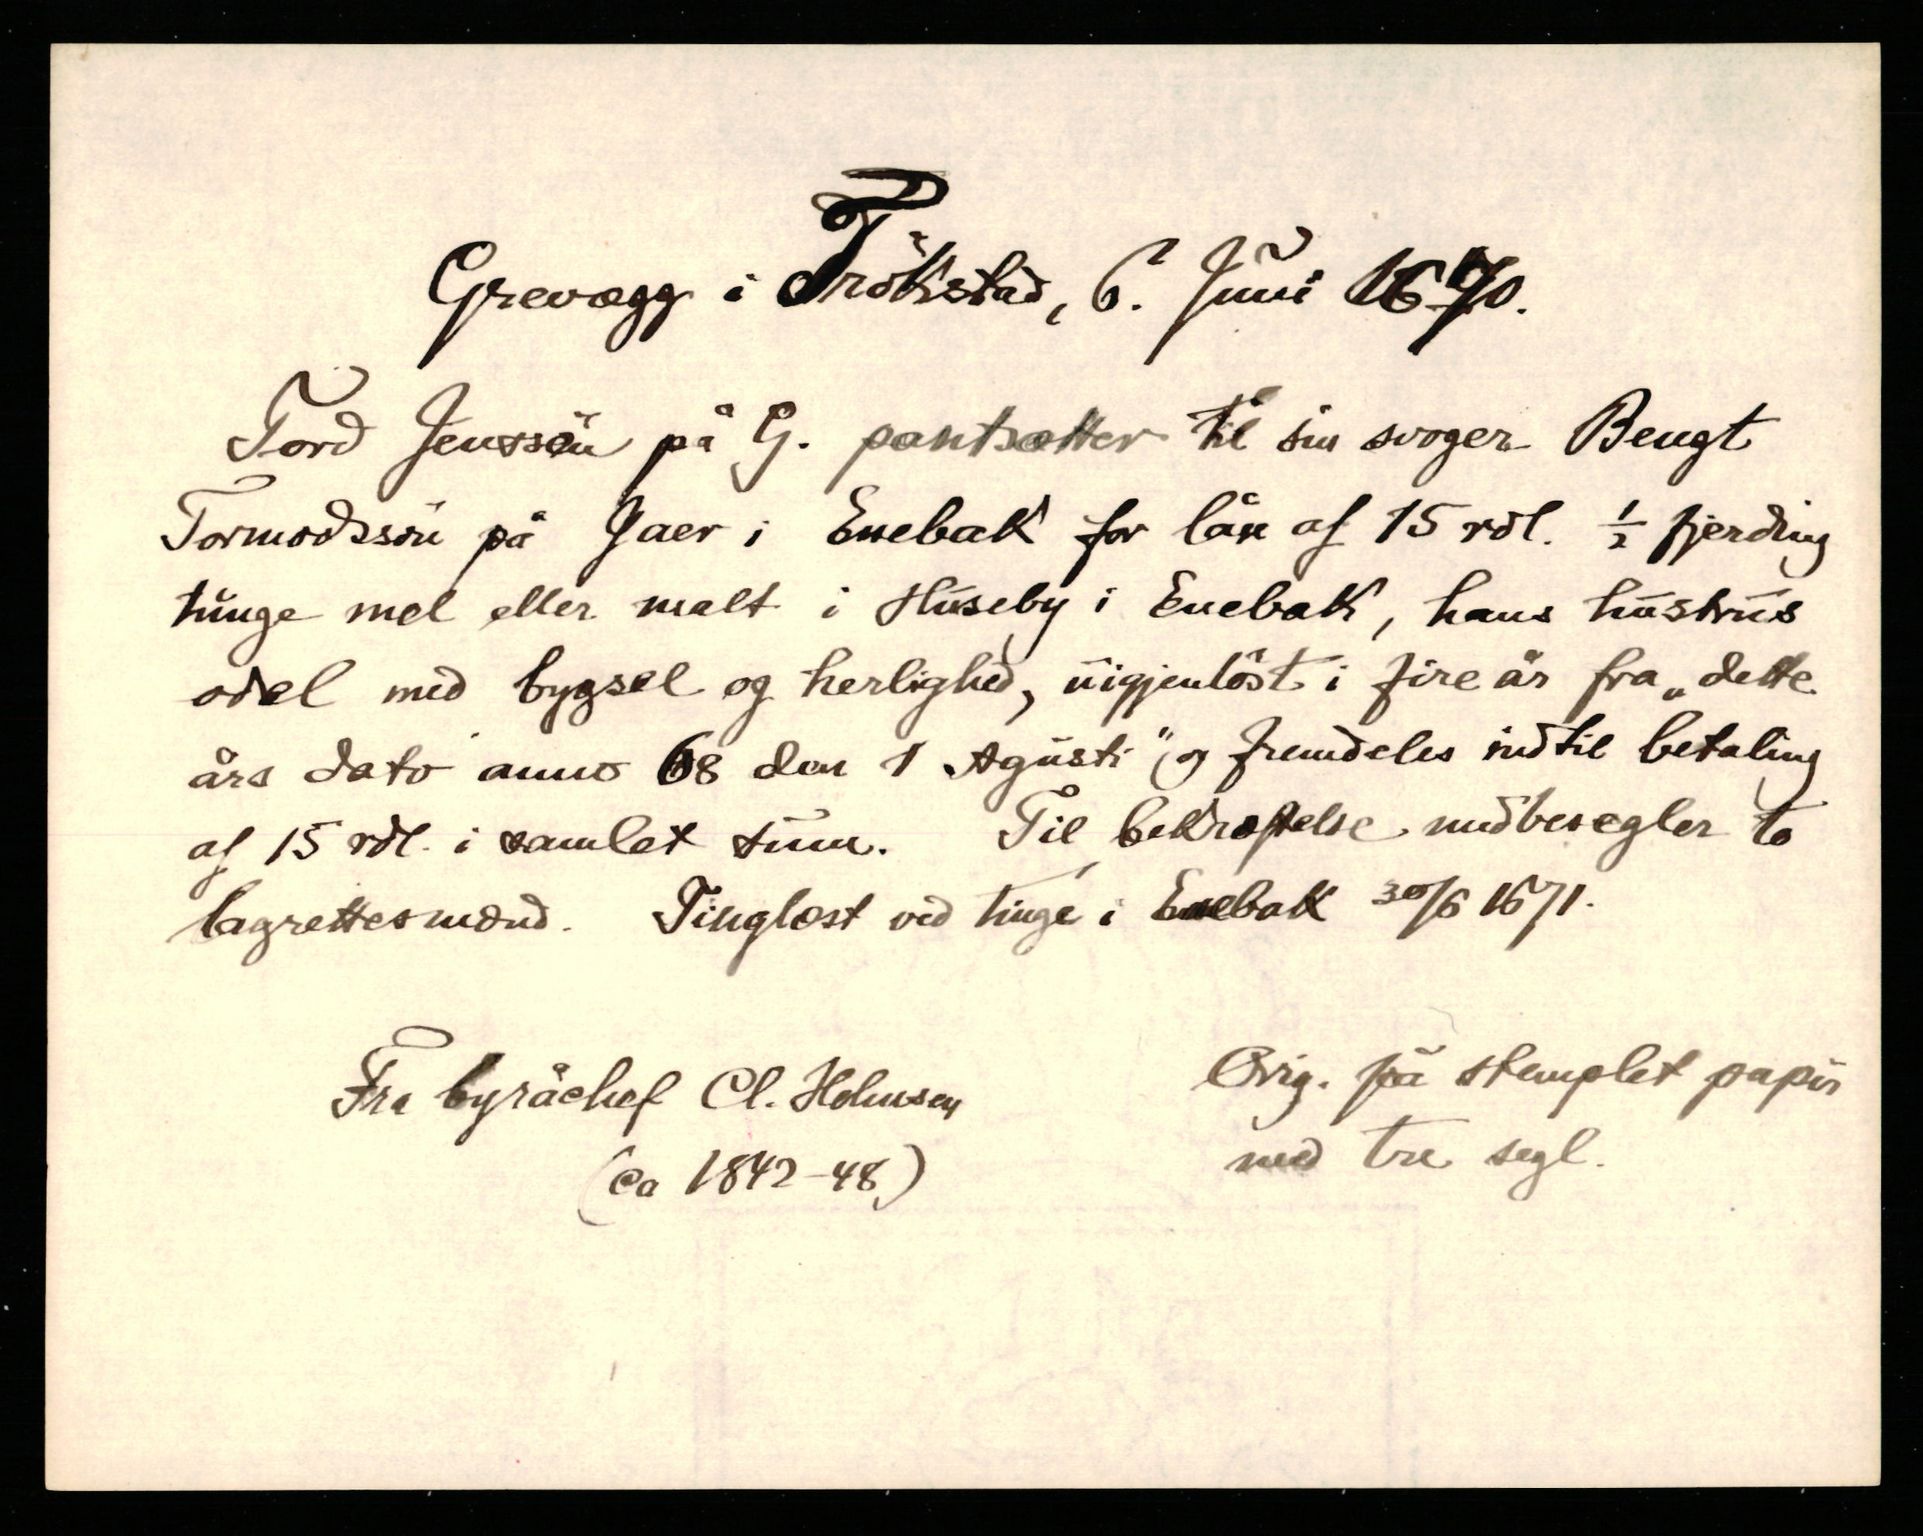 Grevægg i Trökstad, 6. Juni 1670.
Tord Jenssön på G. pantsætter til sin svoger Bengt
Tormodssön på Gaer i Enebak for lån af 15 rdl. ½ fjerding
tunge mel eller malt i Huseby i Enebak, hans hustrus
odel med bygsel og herlighed, uigjenlöst i fire år fra „dette
års dato anno 68 den 1 Agusti" og fremdeles indtil betaling
af 15 rdl. i samlet sum. Til bekræftelse medbesegler to
lagrettesmænd. Tinglæst ved tinge i Enebak 30/6 1671.
Fra byråchef Cl. Holmsen
(ca 1842-48)
Orig. på stemplet papir
med tre segl.